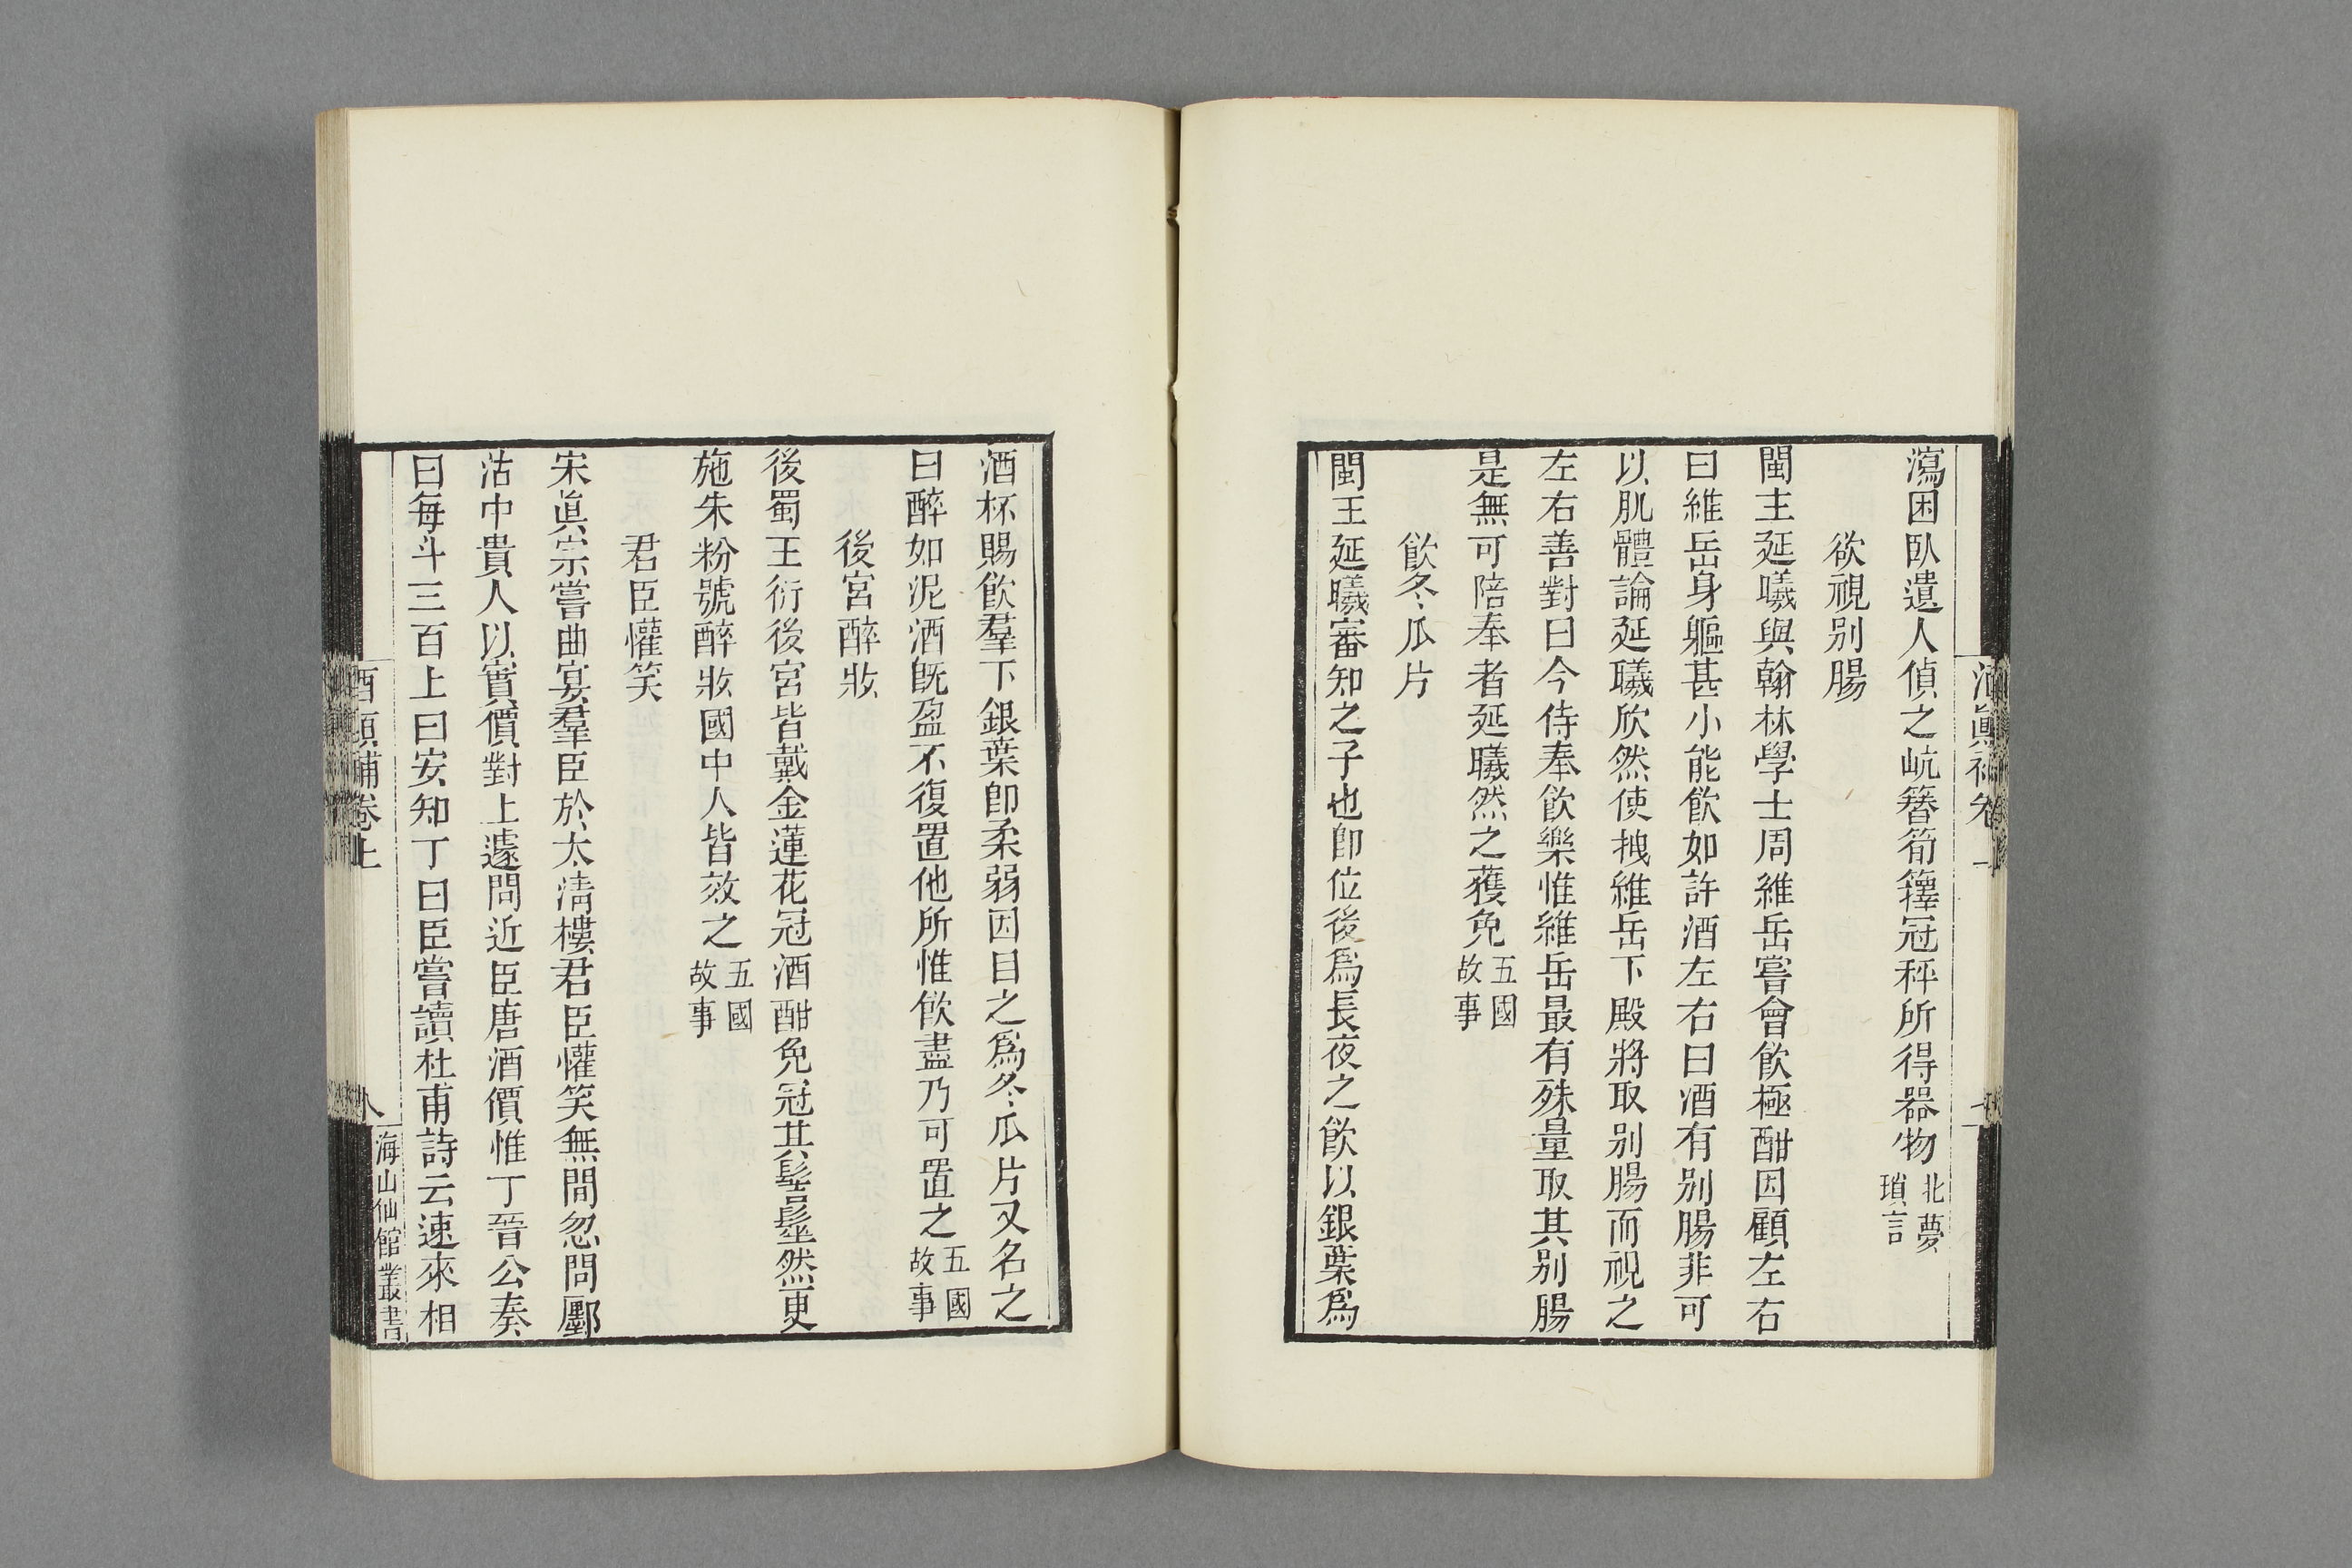 瀉困臥遺人偵之㠉簪筍籜冠秤所得器物 北夢瑣言
欲視别腸
閩主延曦與翰林學士周維岳嘗會飮極酣因顧左右
曰維岳身軀甚小能飮如許酒左右曰酒有别腸非可
以肌體論延曦欣然使拽維岳下殿將取别腸而視之
左右善對曰今侍奉飮樂惟維岳最有殊量取其别腸
是無可陪奉者延曦然之獲免 五國故事
飮冬瓜片
閩王延曦審知之子也卽位後爲長夜之飮以銀葉爲
酒杯賜飮羣下銀葉卽柔弱因目之爲冬瓜片又名之
曰醉如泥酒旣盈不復置他所惟飮盡乃可置之 五國故事
後宮醉妝
後蜀王衍後宮皆戴金蓮花冠酒酣免冠其髻髽然更
施朱粉號醉妝國中人皆效之 五國故事
君臣懽笑
宋眞宗嘗曲宴羣臣於太淸樓君臣懽笑無間忽問鄽
沽中貴人以實價對上遽問近臣唐酒價惟丁晉公奏
曰每斗三百上曰安知丁曰臣嘗讀杜甫詩云速來相
酒顚補卷上
八
海山仙館叢書